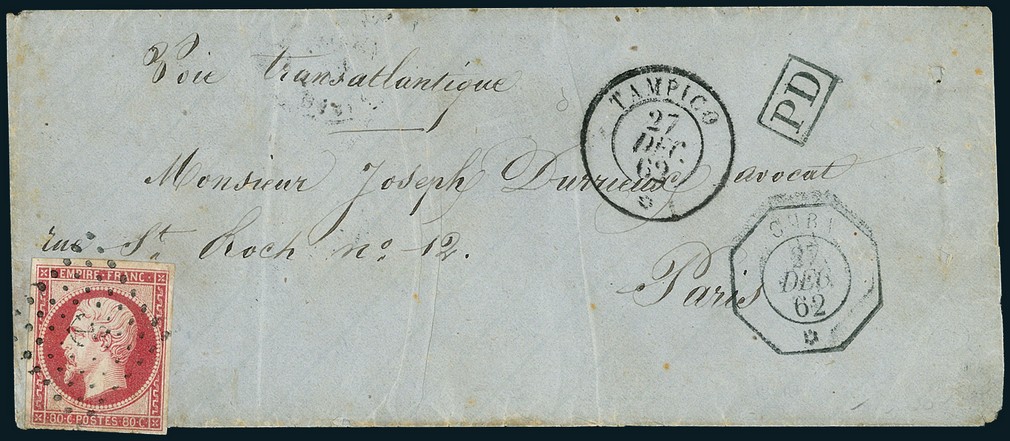 Voie transatlantique
TAMPICO
27
DEC.
62
PD
Monsieur Joseph Durrieux avocat
rue St. Roch no. 12.
Paris
CUBA
27
DEC.
62
EMPIRE FRANC.
80 C POSTES 80 C